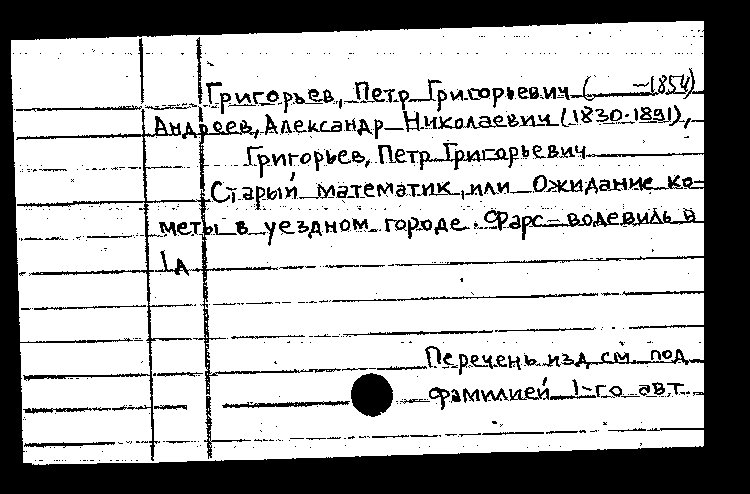 Григорьев, Петр Григорьевич ( –1854)
Андреев, Александр Николаевич (1830-1891),
Григорьев, Петр Григорьевич
Старый математик, или Ожидание ко-
меты в уездном городе. Фарс-водевиль в
1 д
Перечень изд см. под
фамилией 1-го авт.